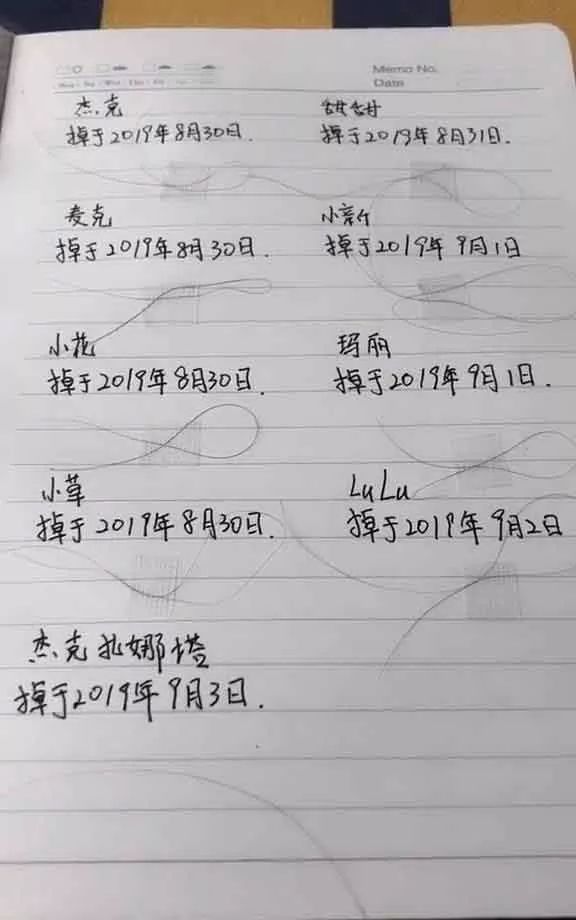 Memo No.
Date
杰克
掉于2019年8月30日.
甜甜
掉于2019年8月31日.
麦克
掉于2019年8月30日.
掉于2019年9月1日
小花
掉于2019年8月30日.
玛丽
掉于2019年9月1日.
小草
掉于2019年8月30日.
LuLu
掉于2019年9月2日
杰克扎娜塔
掉于2019年9月3日.